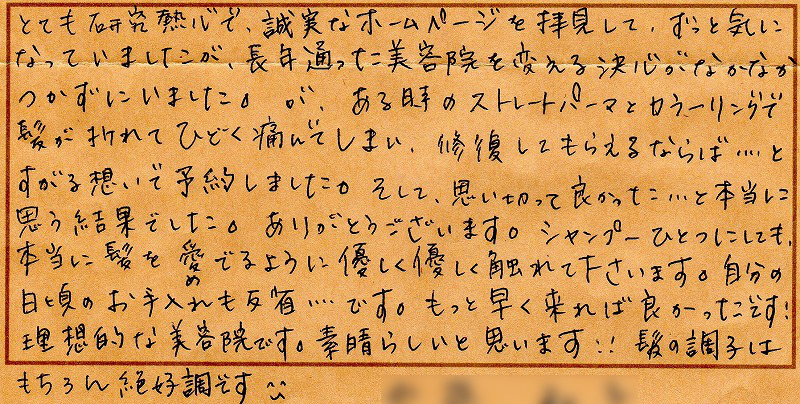 とても研究熱心で、誠実なホームページを拝見して、ずっと気に
なっていましたが、長年通った美容院を変える決心がなかなか
つかずにいました。が、ある時のストレートパーマとカラーリングで
髪が折れてひどく痛んでしまい、修復してもらえるならば…と
すがる想いで予約しました。そして、思い切って良かった…と本当に
思う結果でした。ありがとうございます。シャンプーひとつにしても、
本当に髪を愛めでるように優しく優しく触れて下さいます。自分の
日頃のお手入れも反省…です。もっと早く来れば良かったです!
理想的な美容院です。素晴らしいと思います!! 髪の調子は
もちろん絶好調です